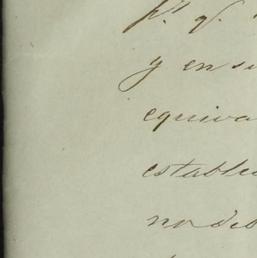 p.r q.
y en su
equiva
estable
no deb